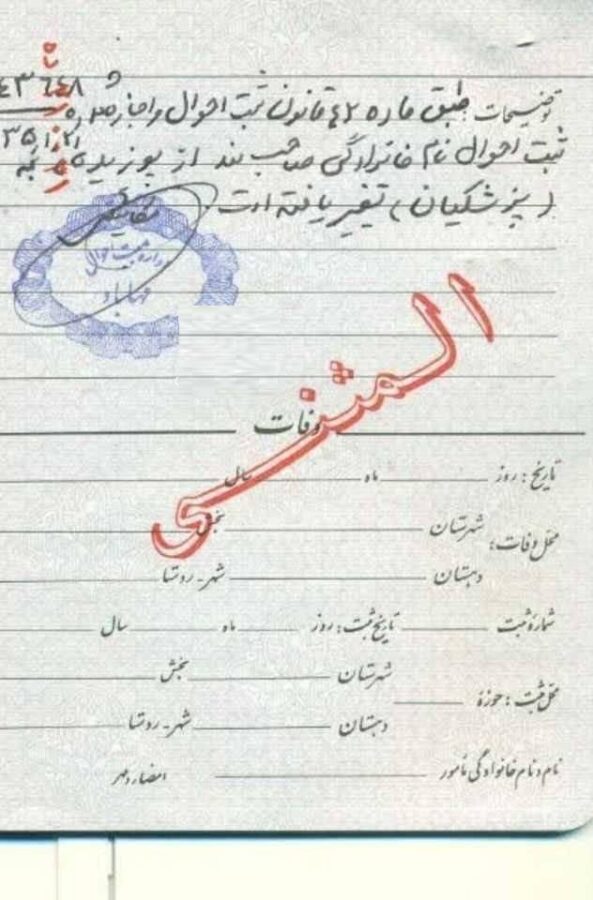 توضیحات طبق ماده ۴۲ قانون ثبت احوال و اجازه
ثبت احوال نام خانوادگی صاحب سند از
(پزشکیان) تغییر یافته است.
المثنی
وفات
تاریخ: روز ماه سال
محل وفات: شهرستان بخش
دهستان شهر-روستا
شماره ثبت تاریخ ثبت: روز ماه سال
محل ثبت: حوزه شهرستان بخش
دهستان شهر-روستا
نام و نام خانوادگی مأمور امضاء و مهر